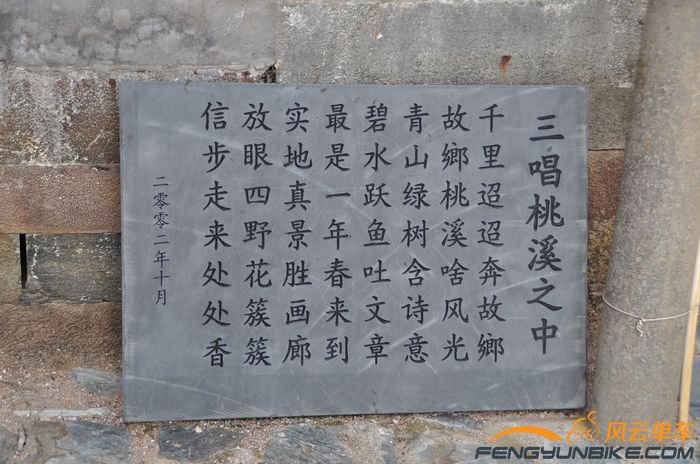 三唱桃溪之中
千里迢迢奔故鄉
故鄉桃溪啥风光
青山绿树含诗意
碧水跃鱼吐文章
最是一年春来到
实地真景胜画廊
放眼四野花簇簇
信步走来处处香
二零零二年十月
风云单车
FENGYUNBIKE.COM